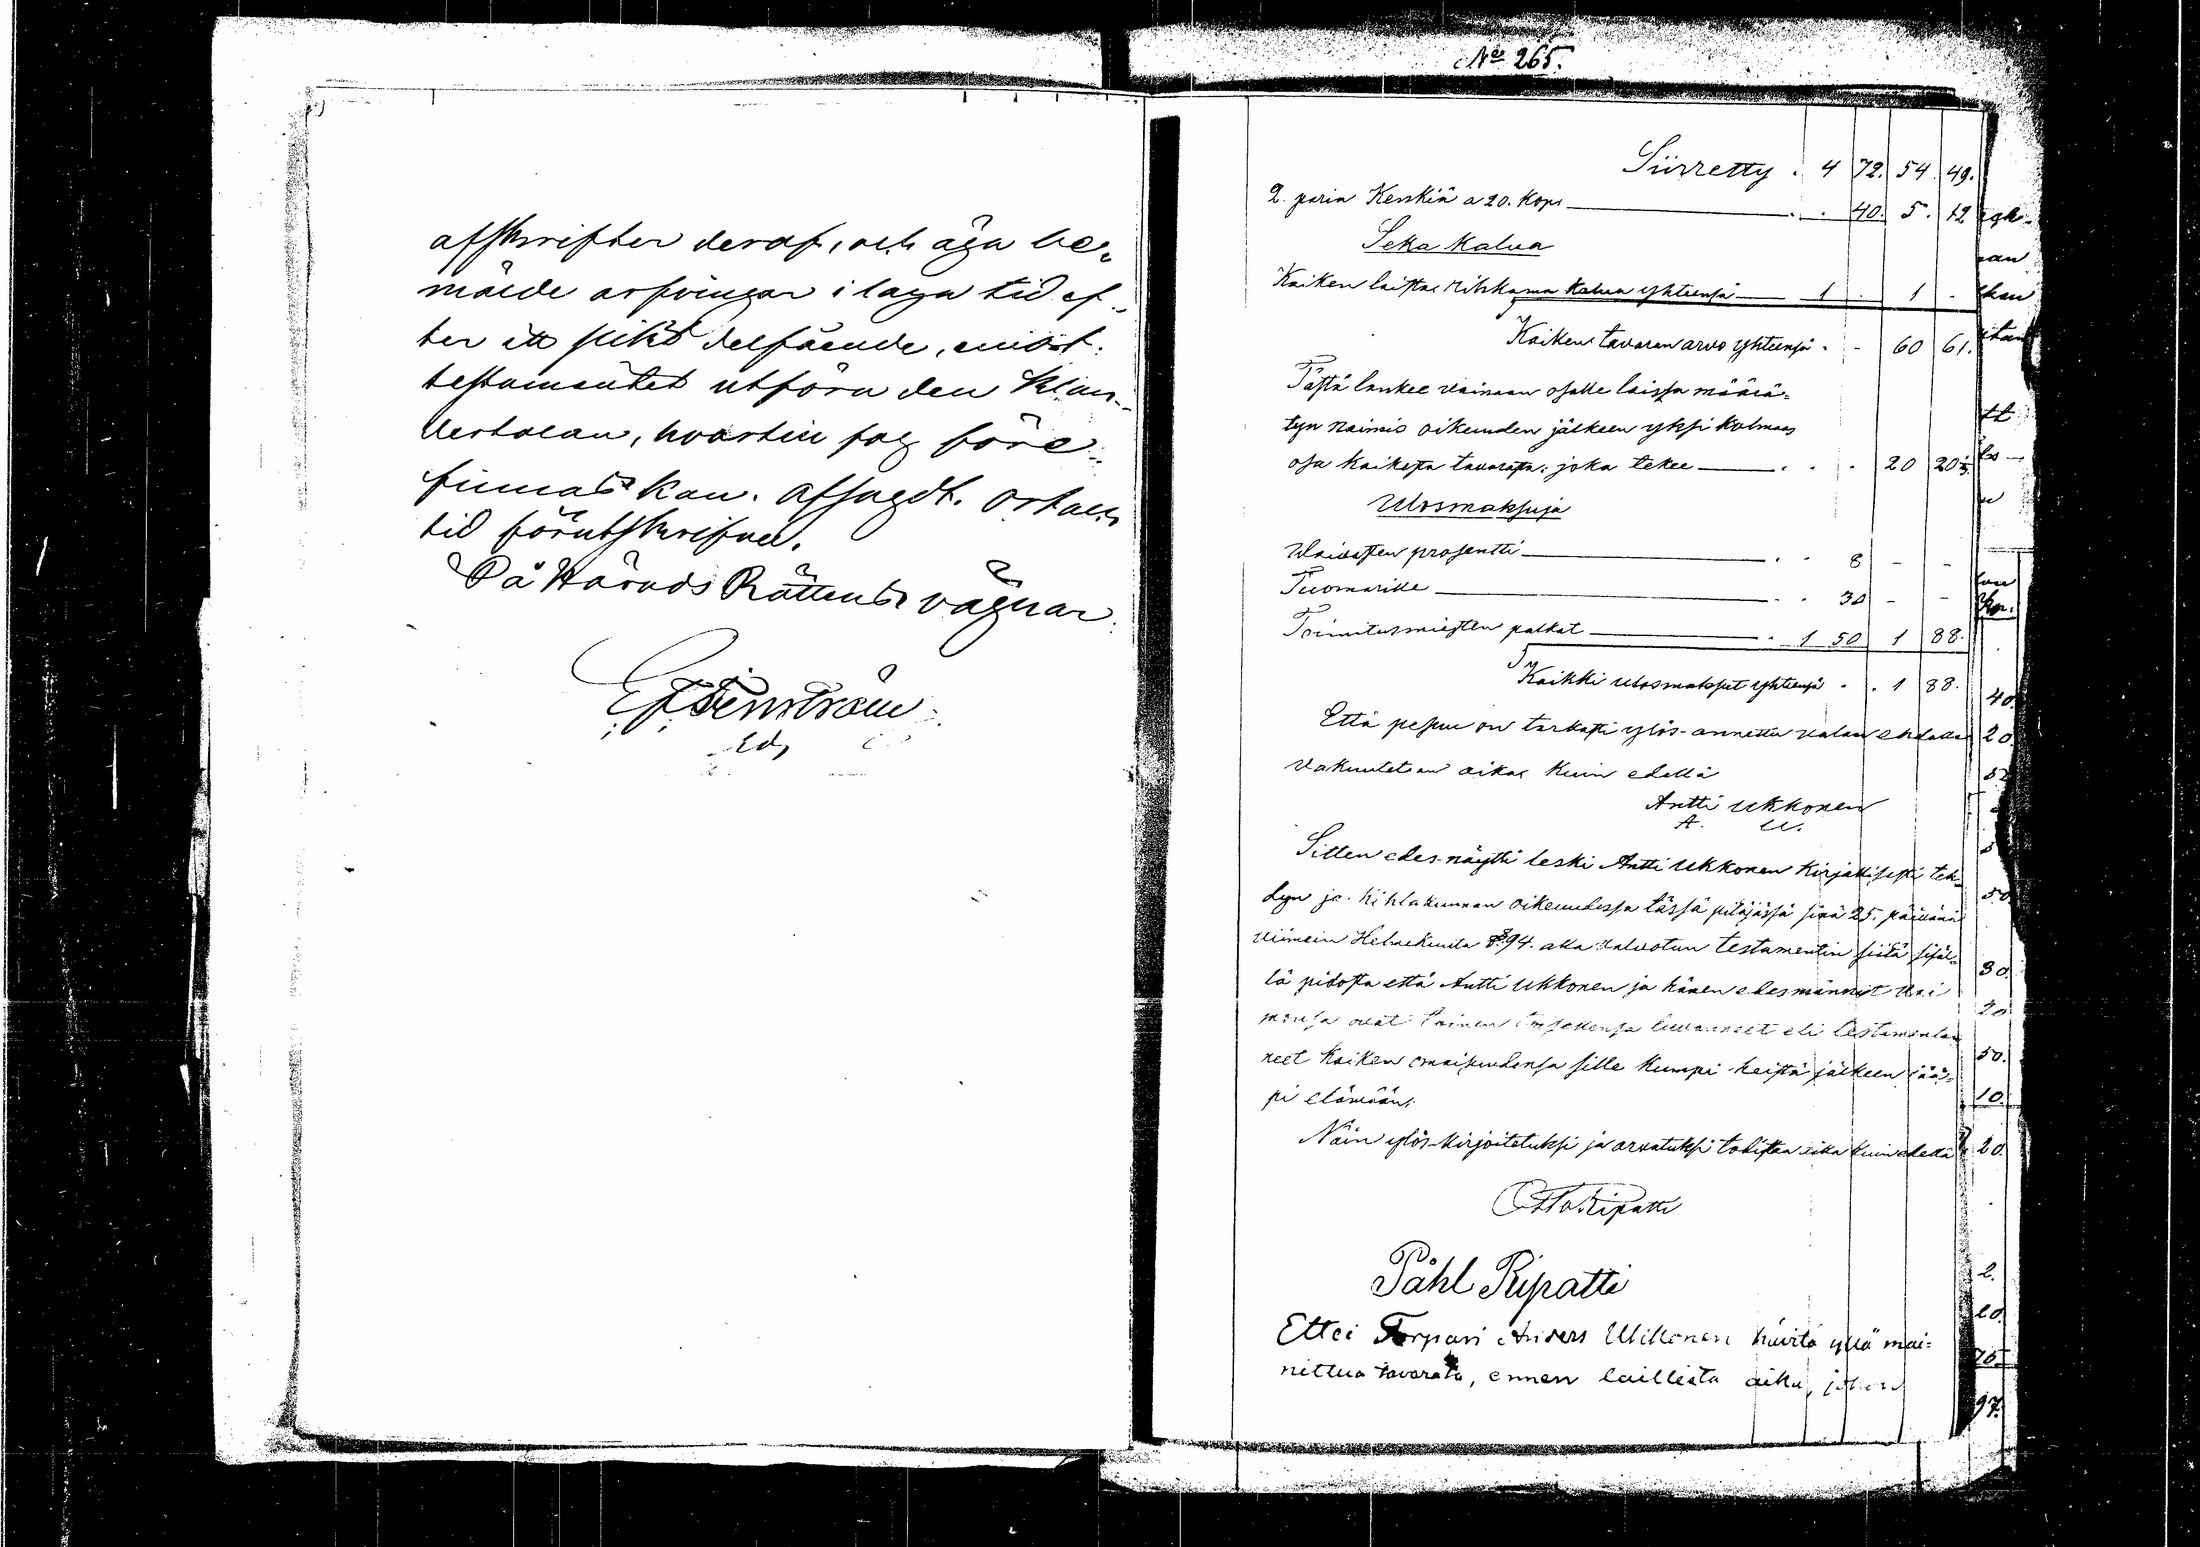 afskrifter deraf, och äga be-
mälde arfvingar i laga tid ef-
ter ett sådt delfående, emot
testamentet utföra den klan-
dertalan, hvartill fog före-
finnas kan. Afsagdt. Ort och
tid förutskrifne.
På Härads Rättens vägnar
Ed,
No 265.
Siirretty . 4 72. 54. 49.
2. paria Kenkiä a 20. Kop. 40. 5. 12
Seka kalua
Kaiken laista kalua yhteensä 1 - 1 -
Kaiken tavaran arvo yhteensä - - 60 61.
Tästä lankee vainaan osalle laissa määrä-
tyn naimis oikeuden jälkeen yksi kolmas
osa kaikesta tavarasta; joka tekee . . . 20 20 1/3
Ulosmaksuja
Vaivasten prosentti . . 8 - -
Tuomarille . . 30 - -
Toimitusmiesten palkat . 1 50 1 88.
Kaikki ulosmaksut yhteensä . . 1 88.
Että pesun on tarkasti ylös-annettu valan ehdolla
vakuutetaan aikas kuin edellä
Antti Ukkonen
A. U.
Sitten edes-näytti leski Antti Ukkonen kirjallisesti teh-
dyn ja kihlakunnan oikeudessa tässä pitäjässä sinä 25. päivänä
viimein Helmekuuta 894. alla valvotun testamentin siitä sisäl-
lä pidosta että Antti Ukkonen ja hänen edesmännyt vai
monsa ovat toinen toisellensa luvanneet eli testamentan
neet kaiken omaisuudensa sille kumpi heistä jälkeen jää-
pi elämään.
Näin ylös-kirjoitetuksi ja arvatuksi todistaa aika kuin edellä
Otto Ripatti
Påhl Ripatti
Ettei Torpari Anders Ukkonen hävitä yllä mai-
nittua tavarata, ennen laillista aika, johon